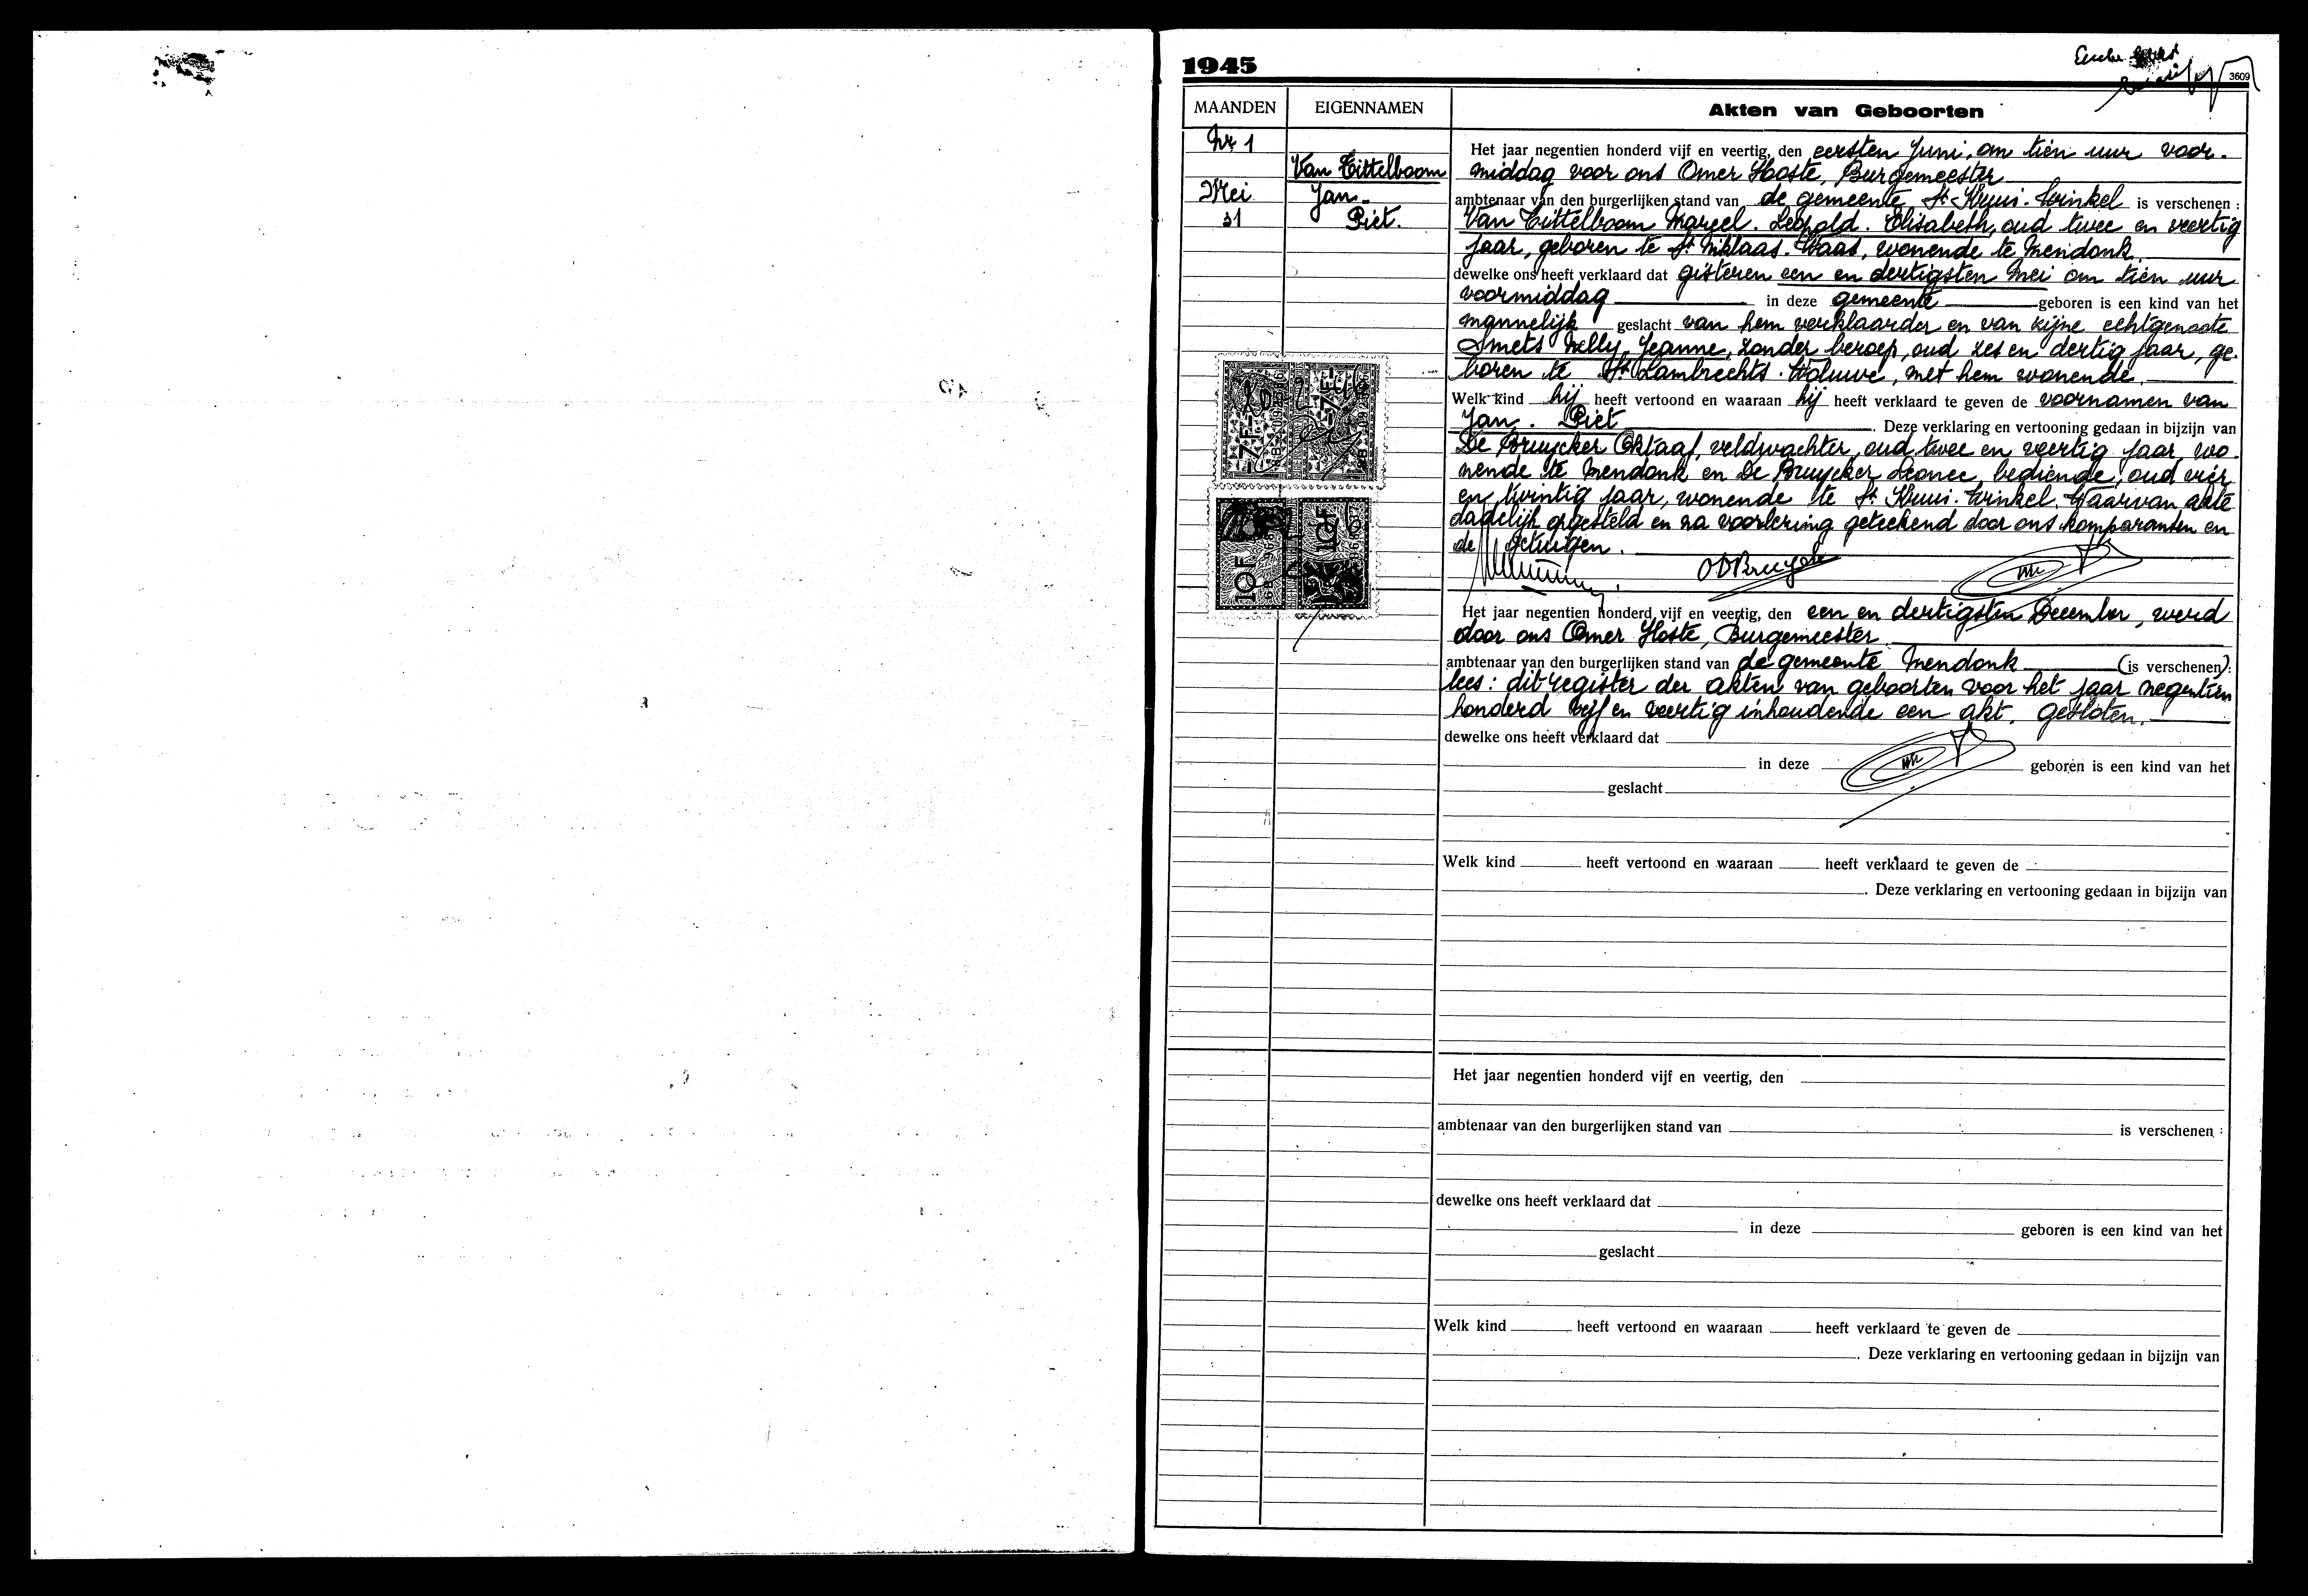 1945
3609
MAANDEN EIGENNAMEN Akten van Geboorten
Nr 1
Van Tittelboom
Mei Jan.
31 Piet.
Het jaar negentien honderd vijf en veertig, den eersten Juni, om tien uur voor-
middag voor ons Omer Hoste, Burgemeester
ambtenaar van den burgerlijken stand van de gemeente St Kruis-Winkel is verschenen :
Van Tittelboom Marcel. Leopold. Elisabeth, oud twee en veertig
jaar, geboren te St Niklaas-Waas, wonende te Mendonk.
dewelke ons heeft verklaard dat gisteren een en dertigsten Mei om tien uur
voormiddag in deze gemeente geboren is een kind van het
mannelijk geslacht van hem verklaarder en van zijne echtgenoote
Smets Nelly, Jeanne, zonder beroep, oud zes en dertig jaar, ge-
boren te St Lambrechts-Woluwe, met hem wonende.
Welk kind hij heeft vertoond en waaraan hij heeft verklaard te geven de voornamen van
Jan. Piet . Deze verklaring en vertooning gedaan in bijzijn van
De Bruycker Oktaaf, veldwachter, oud twee en veertig jaar wo-
nende te Mendonk en De Bruycker Leonce, bediende, oud vier
en twintig jaar, wonende te St Kruis-Winkel. Waarvan akte
dadelijk opgesteld en na voorlezing geteekend door ons komparanten en
de getuigen.
7F
7F
10F
10F
ODBruycker
Het jaar negentien honderd vijf en veertig, den een en dertigsten December, werd
door ons Omer Hoste, Burgemeester
ambtenaar van den burgerlijken stand van de gemeente Mendonk (is verschenen):
lees: dit register der akten van geboorten voor het jaar negentien
honderd vijf en veertig inhoudende een akt, gesloten.
dewelke ons heeft verklaard dat
in deze geboren is een kind van het
geslacht
Welk kind heeft vertoond en waaraan heeft verklaard te geven de
. Deze verklaring en vertooning gedaan in bijzijn van
Het jaar negentien honderd vijf en veertig, den
ambtenaar van den burgerlijken stand van is verschenen :
dewelke ons heeft verklaard dat
in deze geboren is een kind van het
geslacht
Welk kind heeft vertoond en waaraan heeft verklaard te geven de
. Deze verklaring en vertooning gedaan in bijzijn van